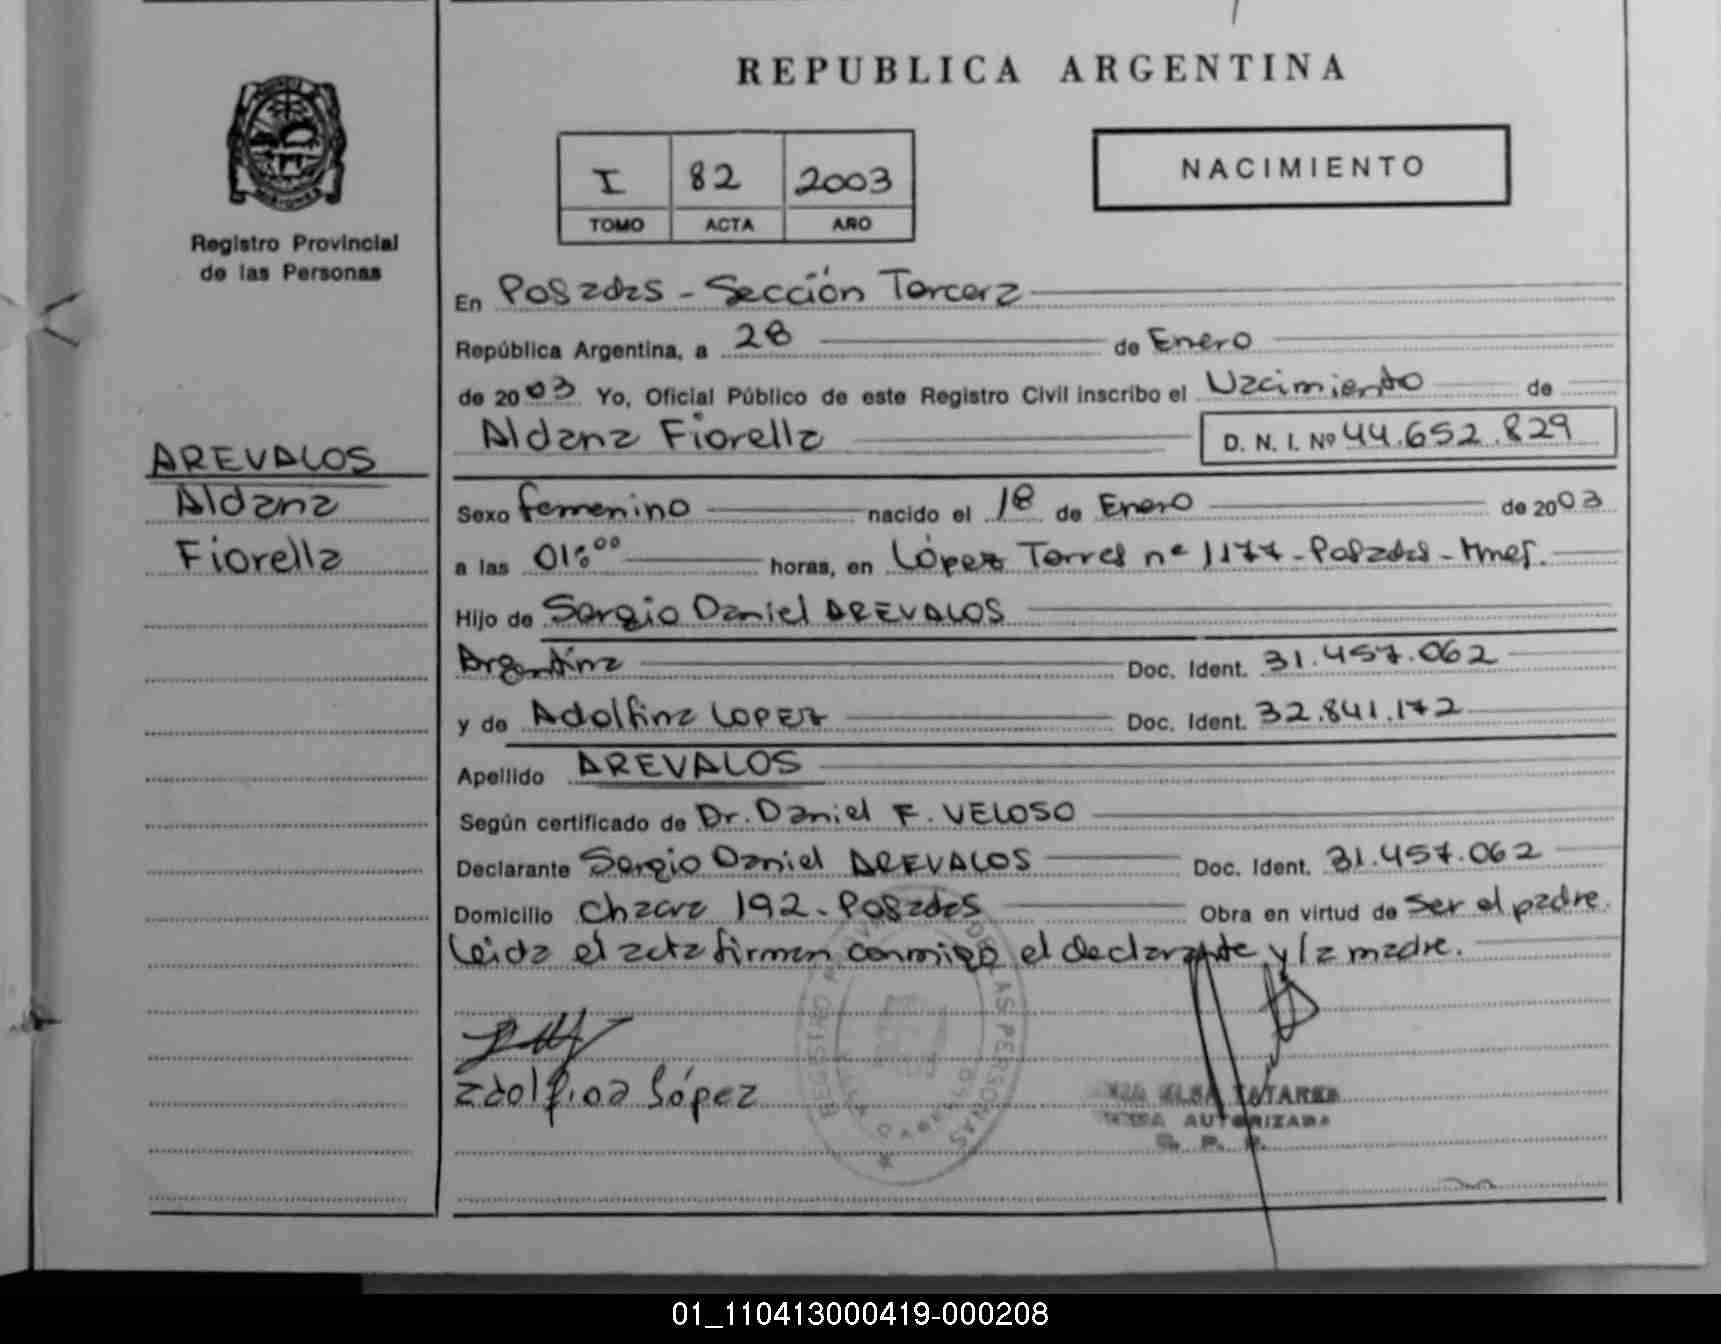 REPUBLICA ARGENTINA
NACIMIENTO
I 82 2003
TOMO ACTA AÑO
Registro Provincial
de las Personas
AREVALOS
Aldana
Fiorella
En Posadas - Sección Tercera
República Argentina, a 28 de Enero
de 2003 Yo, Oficial Público de este Registro Civil inscribo el Nacimiento de
Aldana Fiorella D. N. I. Nº 44.652.829
Sexo femenino nacido el 18 de Enero de 2003
a las 01:00 horas, en López Torres nº 1177 - Posadas - Mnes.
Hijo de Sergio Daniel AREVALOS
Argentina Doc. Ident. 31.457.062
y de Adolfina LOPEZ Doc. Ident. 32.841.172
Apellido AREVALOS
Según certificado de Dr. Daniel F. VELOSO
Declarante Sergio Daniel AREVALOS Doc. Ident. 31.457.062
Domicilio Chacra 192 - Posadas Obra en virtud de ser el padre.
Leida el acta firman conmigo el declarante y la madre.
adolfina López
ELSA
AUTORIZADA
01_110413000419-000208